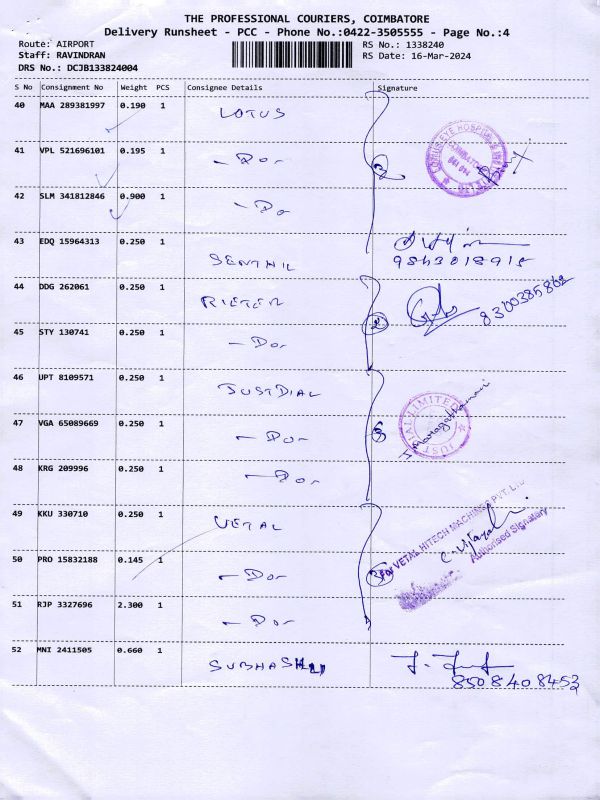 THE PROFESSIONAL COURIERS, COIMBATORE
Delivery Runsheet - PCC - Phone No.:0422-3505555 - Page No.:4
Route: AIRPORT
Staff: RAVINDRAN
DRS No.: DCJB133824004
RS No.: 1338240
RS Date: 16-Mar-2024
S No Consignment No Weight PCS Consignee Details Signature
40 MAA 289381997 0.190 1 LOTUS
41 VPL 521696101 0.195 1 - Do -
42 SLM 341812846 0.900 1 - Do
43 EDQ 15964313 0.250 1 SENTHIL
44 DDG 262061 0.250 1 RIETER 8300385868
45 STY 130741 0.250 1 - Do -
46 UPT 8109571 0.250 1 JUSTDIAL
JUST DIAL LIMITED
47 VGA 65089669 0.250 1 - Do -
48 KRG 209996 0.250 1 - Do -
49 KKU 330710 0.250 1 VETAL
For VETAL HITECH MACHINES PVT. LTD
Authorised Signatory
50 PRO 15832188 0.145 1 - Do -
51 RJP 3327696 2.300 1 - Do -
52 MNI 2411505 0.660 1 SUBHASHI
8508408453